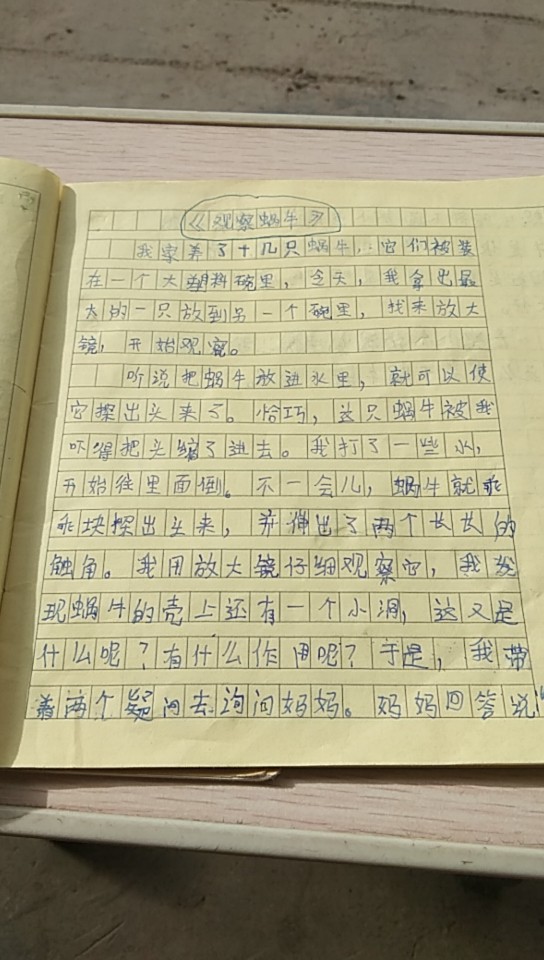 《观察蜗牛》
我家养了十几只蜗牛，它们被装
在一个大塑料碗里，今天，我拿出最
大的一只放到另一个碗里，找来放大
镜，开始观察。
听说把蜗牛放进水里，就可以使
它探出头来了。恰巧，这只蜗牛被我
吓得把头缩了进去。我打了一些水，
开始往里面倒。不一会儿，蜗牛就乖
乖块探出头来，并伸出了两个长长的
触角。我用放大镜仔细观察它，我发
现蜗牛的壳上还有一个小洞，这又是
什么呢？有什么作用呢？于是，我带
着两个疑问去询问妈妈。妈妈回答说“